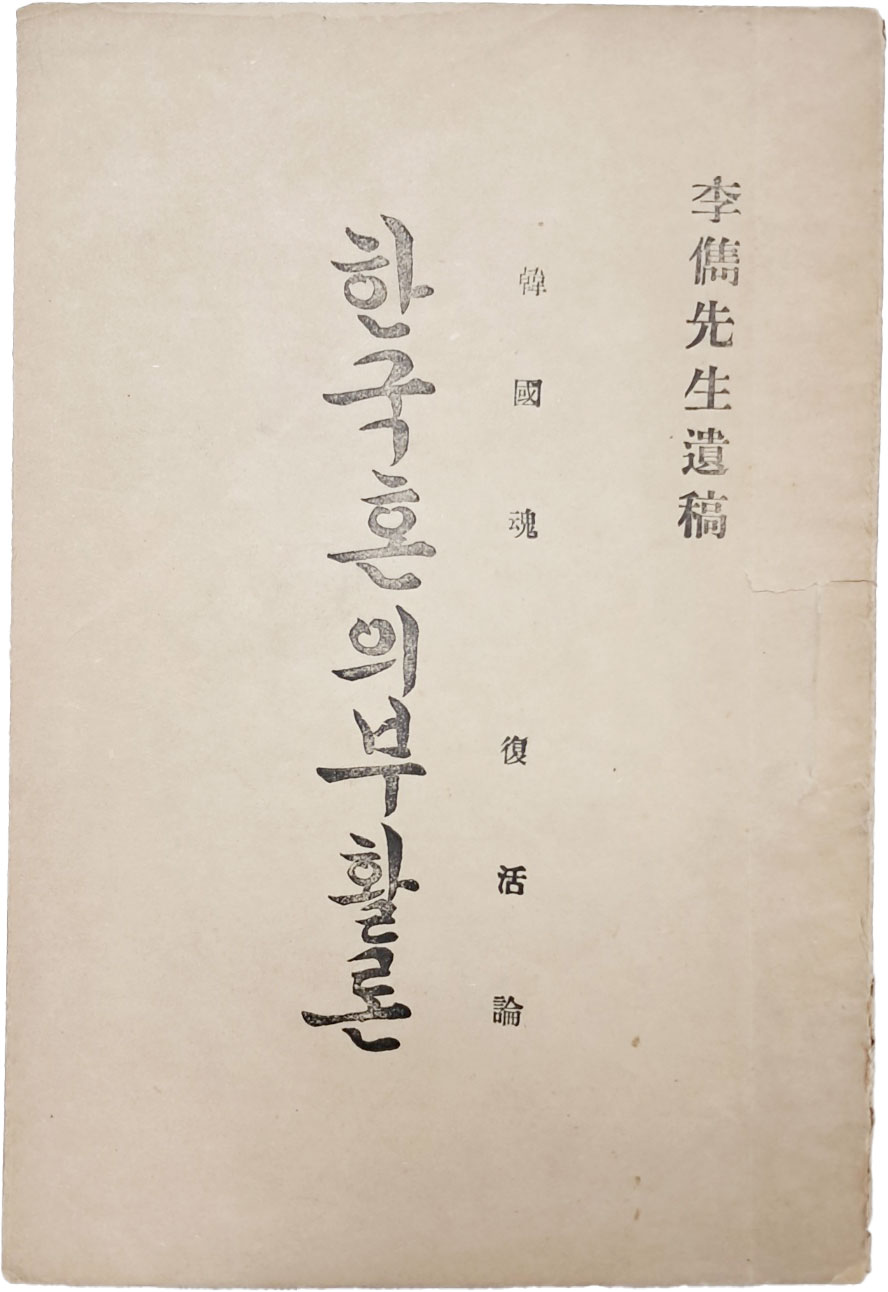 李儁先生遺稿
韓國魂 復活論
한국혼의부활론